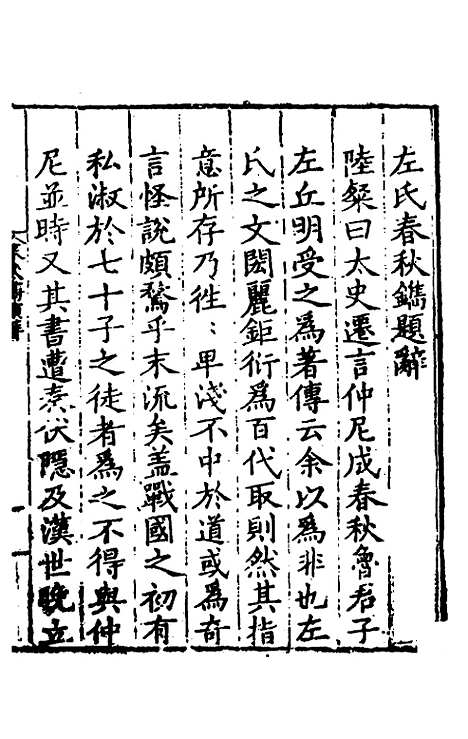 左氏春秋鐫題辭
陸粲曰太史遷言仲尼成春秋魯君子
左丘明受之為著傳云余以為非也左
氏之文閎麗鉅衍為百代取則然其指
意所存乃徃〻卑淺不中於道或為奇
言怪說頗騖乎末流矣盖戰國之初有
私淑於七十子之徒者為之不得與仲
尼並時又其書遭秦伏隱及漢世晚立